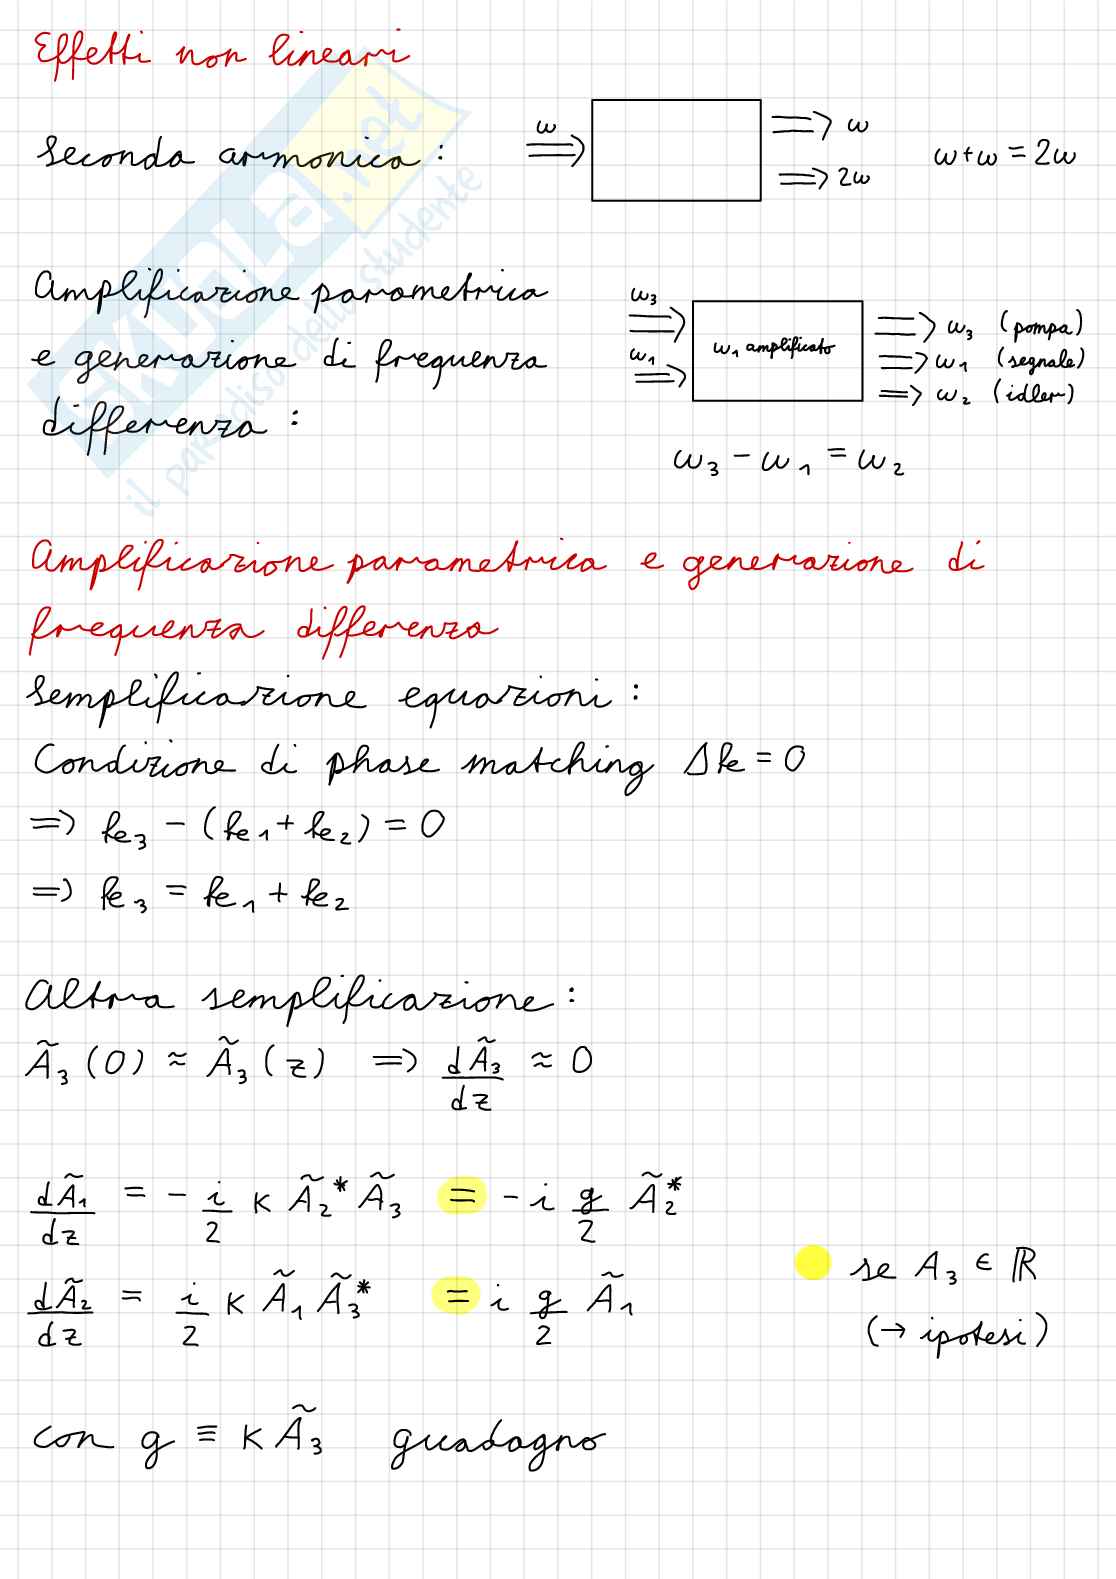 Effetti non lineari
Seconda armonica:
ω
⇒ ω
⇒ 2ω
ω+ω = 2ω
Amplificazione parametrica
e generazione di frequenza
differenza:
ω₃
ω₁
ω₁ amplificato
⇒ ω₃ (pompa)
⇒ ω₁ (segnale)
⇒ ω₂ (idler)
ω₃ - ω₁ = ω₂
SKUOLA.net
il paradiso dello studente
Amplificazione parametrica e generazione di
frequenza differenza
Semplificazione equazioni:
Condizione di phase matching Δk = 0
⇒ k₃ - (k₁ + k₂) = 0
⇒ k₃ = k₁ + k₂
Altra semplificazione:
Ã₃(0) ≈ Ã₃(z) ⇒ dÃ₃/dz ≈ 0
dÃ₁/dz = - i/2 K Ã₂* Ã₃ = - i g/2 Ã₂*
dÃ₂/dz = i/2 K Ã₁ Ã₃* = i g/2 Ã₁
se A₃ ∈ ℝ
(→ ipotesi)
con g ≡ K Ã₃ guadagno